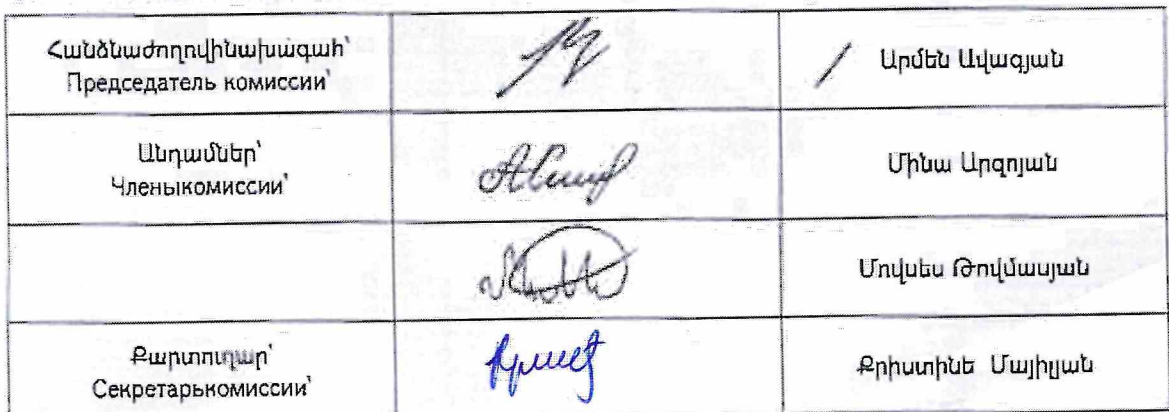 Հանձնաժողովինախագահ՝
Председатель комиссии՝
Արմեն Ավագյան
Անդամներ՝
Членыкомиссии՝
Մինա Արզոյան
Մովսես Թովմասյան
Քարտուղար՝
Секретарькомиссии՝
Քրիստինե Մայիլյան